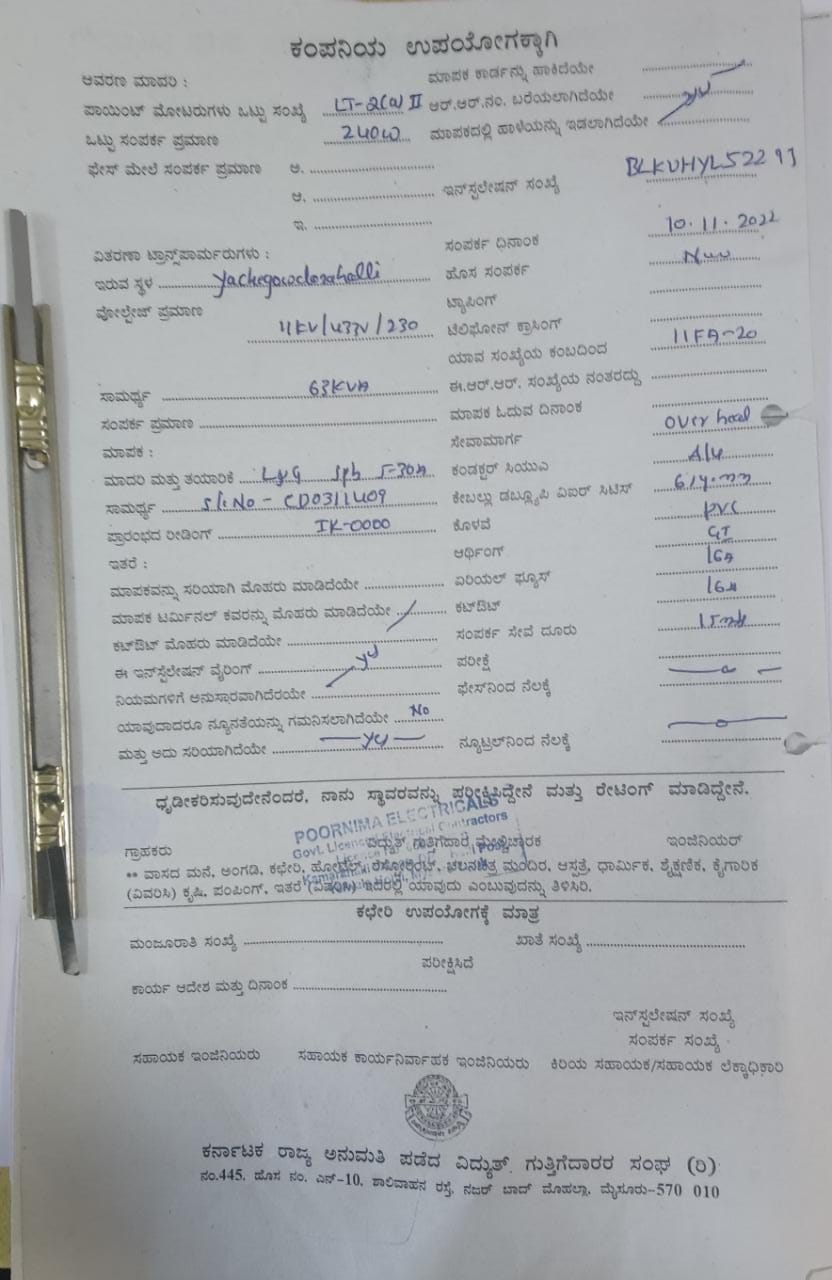 ಕಂಪನಿಯ ಉಪಯೋಗಕ್ಕಾಗಿ
ಆವರಣ ಮಾದರಿ :
ಮಾಪಕ ಕಾರ್ಡನ್ನು ಹಾಕಿದೆಯೇ
ಪಾಯಿಂಟ್ ಮೋಟರುಗಳು ಒಟ್ಟು ಸಂಖ್ಯೆ LT-2(a) II ಆರ್.ಆರ್.ನಂ. ಬರೆಯಲಾಗಿದೆಯೇ
ಒಟ್ಟು ಸಂಪರ್ಕ ಪ್ರಮಾಣ 240W ಮಾಪಕದಲ್ಲಿ ಹಾಳೆಯನ್ನು ಇಡಲಾಗಿದೆಯೇ
ಫೇಸ್ ಮೇಲೆ ಸಂಪರ್ಕ ಪ್ರಮಾಣ ಅ.
ಆ. ಇನ್‌ಸ್ಪಲೇಷನ್ ಸಂಖ್ಯೆ BLKVHYL52293
ಇ.
ಸಂಪರ್ಕ ದಿನಾಂಕ 10.11.2022
ವಿತರಣಾ ಟ್ರಾನ್ಸ್‌ಫಾರ್ಮರುಗಳು :
ಇರುವ ಸ್ಥಳ Yachegowdanahalli ಹೊಸ ಸಂಪರ್ಕ New
ವೋಲ್ಟೇಜ್ ಪ್ರಮಾಣ ಟ್ಯಾಪಿಂಗ್
11KV/433V/230 ಟೆಲಿಫೋನ್ ಕ್ರಾಸಿಂಗ್
ಯಾವ ಸಂಖ್ಯೆಯ ಕಂಬದಿಂದ 11FA-20
ಸಾಮರ್ಥ್ಯ 63KVA ಈ.ಆರ್.ಆರ್. ಸಂಖ್ಯೆಯ ನಂತರದ್ದು
ಸಂಪರ್ಕ ಪ್ರಮಾಣ ಮಾಪಕ ಓದುವ ದಿನಾಂಕ
ಮಾಪಕ : ಸೇವಾಮಾರ್ಗ Over head
ಮಾದರಿ ಮತ್ತು ತಯಾರಿಕೆ L&G 1ph 5-30A ಕಂಡಕ್ಟರ್ ಸಿಯುಎ
ಸಾಮರ್ಥ್ಯ Sl.No - CD0311409 ಕೇಬಲ್ಲು ಡಬ್ಲ್ಯೂಪಿ ಎಐರ್ ಸಿಟಿಸ್
ಪ್ರಾರಂಭದ ರೀಡಿಂಗ್ IR-0000 ಕೊಳವೆ PVC
ಇತರೆ : ಅರ್ಥಿಂಗ್ GI
ಮಾಪಕವನ್ನು ಸರಿಯಾಗಿ ಮೊಹರು ಮಾಡಿದೆಯೇ ಏರಿಯಲ್ ಫ್ಯೂಸ್ 16A
ಮಾಪಕ ಟರ್ಮಿನಲ್ ಕವರನ್ನು ಮೊಹರು ಮಾಡಿದೆಯೇ ಕಟ್‌ಔಟ್ 16A
ಕಟ್‌ಔಟ್ ಮೊಹರು ಮಾಡಿದೆಯೇ ಸಂಪರ್ಕ ಸೇವೆ ದೂರು
ಈ ಇನ್‌ಸ್ಪಲೇಷನ್ ವೈರಿಂಗ್ yes ಪರೀಕ್ಷೆ
ನಿಯಮಗಳಿಗೆ ಅನುಸ್ಸಾರವಾಗಿದೆರೆಯೇ ಫೇಸ್‌ನಿಂದ ನೆಲಕ್ಕೆ
ಯಾವುದಾದರೂ ನ್ಯೂನತೆಯನ್ನು ಗಮನಿಸಲಾಗಿದೆಯೇ No
ಮತ್ತು ಅದು ಸರಿಯಾಗಿದೆಯೇ yes ನ್ಯೂಟ್ರಲ್‌ನಿಂದ ನೆಲಕ್ಕೆ
ಧೃಡೀಕರಿಸುವುದೇನೆಂದರೆ, ನಾನು ಸ್ಥಾವರವನ್ನು ಪರೀಕ್ಷಿಸಿದ್ದೇನೆ ಮತ್ತು ರೇಟಿಂಗ್ ಮಾಡಿದ್ದೇನೆ.
POORNIMA ELECTRICALS
Govt. Licensed Electrical Contractors
ಗ್ರಾಹಕರು ವಿದ್ಯುತ್ ಗುತ್ತಿಗೆದಾರ ಮೇಲ್ವಿಚಾರಕ ಇಂಜಿನಿಯರ್
** ವಾಸದ ಮನೆ, ಅಂಗಡಿ, ಕಛೇರಿ, ಹೋಟೆಲ್, ರೆಸ್ಟೋರೆಂಟ್, ಚಲನಚಿತ್ರ ಮಂದಿರ, ಆಸ್ಪತ್ರೆ, ಧಾರ್ಮಿಕ, ಶೈಕ್ಷಣಿಕ, ಕೈಗಾರಿಕ
(ವಿವರಿಸಿ) ಕೃಷಿ, ಪಂಪಿಂಗ್, ಇತರೆ (ವಿವರಿಸಿ) ಇದರಲ್ಲಿ ಯಾವುದು ಎಂಬುವುದನ್ನು ತಿಳಿಸಿರಿ.
ಕಛೇರಿ ಉಪಯೋಗಕ್ಕೆ ಮಾತ್ರ
ಮಂಜೂರಾತಿ ಸಂಖ್ಯೆ ಖಾತೆ ಸಂಖ್ಯೆ
ಪರೀಕ್ಷಿಸಿದೆ
ಕಾರ್ಯ ಆದೇಶ ಮತ್ತು ದಿನಾಂಕ
ಇನ್‌ಸ್ಪಲೇಷನ್ ಸಂಖ್ಯೆ
ಸಂಪರ್ಕ ಸಂಖ್ಯೆ
ಸಹಾಯಕ ಇಂಜಿನಿಯರು ಸಹಾಯಕ ಕಾರ್ಯನಿರ್ವಾಹಕ ಇಂಜಿನಿಯರು ಕಿರಿಯ ಸಹಾಯಕ/ಸಹಾಯಕ ಲೆಕ್ಕಾಧಿಕಾರಿ
ಕರ್ನಾಟಕ ರಾಜ್ಯ ಅನುಮತಿ ಪಡೆದ ವಿದ್ಯುತ್ ಗುತ್ತಿಗೆದಾರರ ಸಂಘ (ರಿ)
ನಂ.445, ಹೊಸ ನಂ. ಎನ್-10, ಶಾಲಿವಾಹನ ರಸ್ತೆ, ನಜರ್ ಬಾದ್ ಮೊಹಲ್ಲಾ, ಮೈಸೂರು-570 010